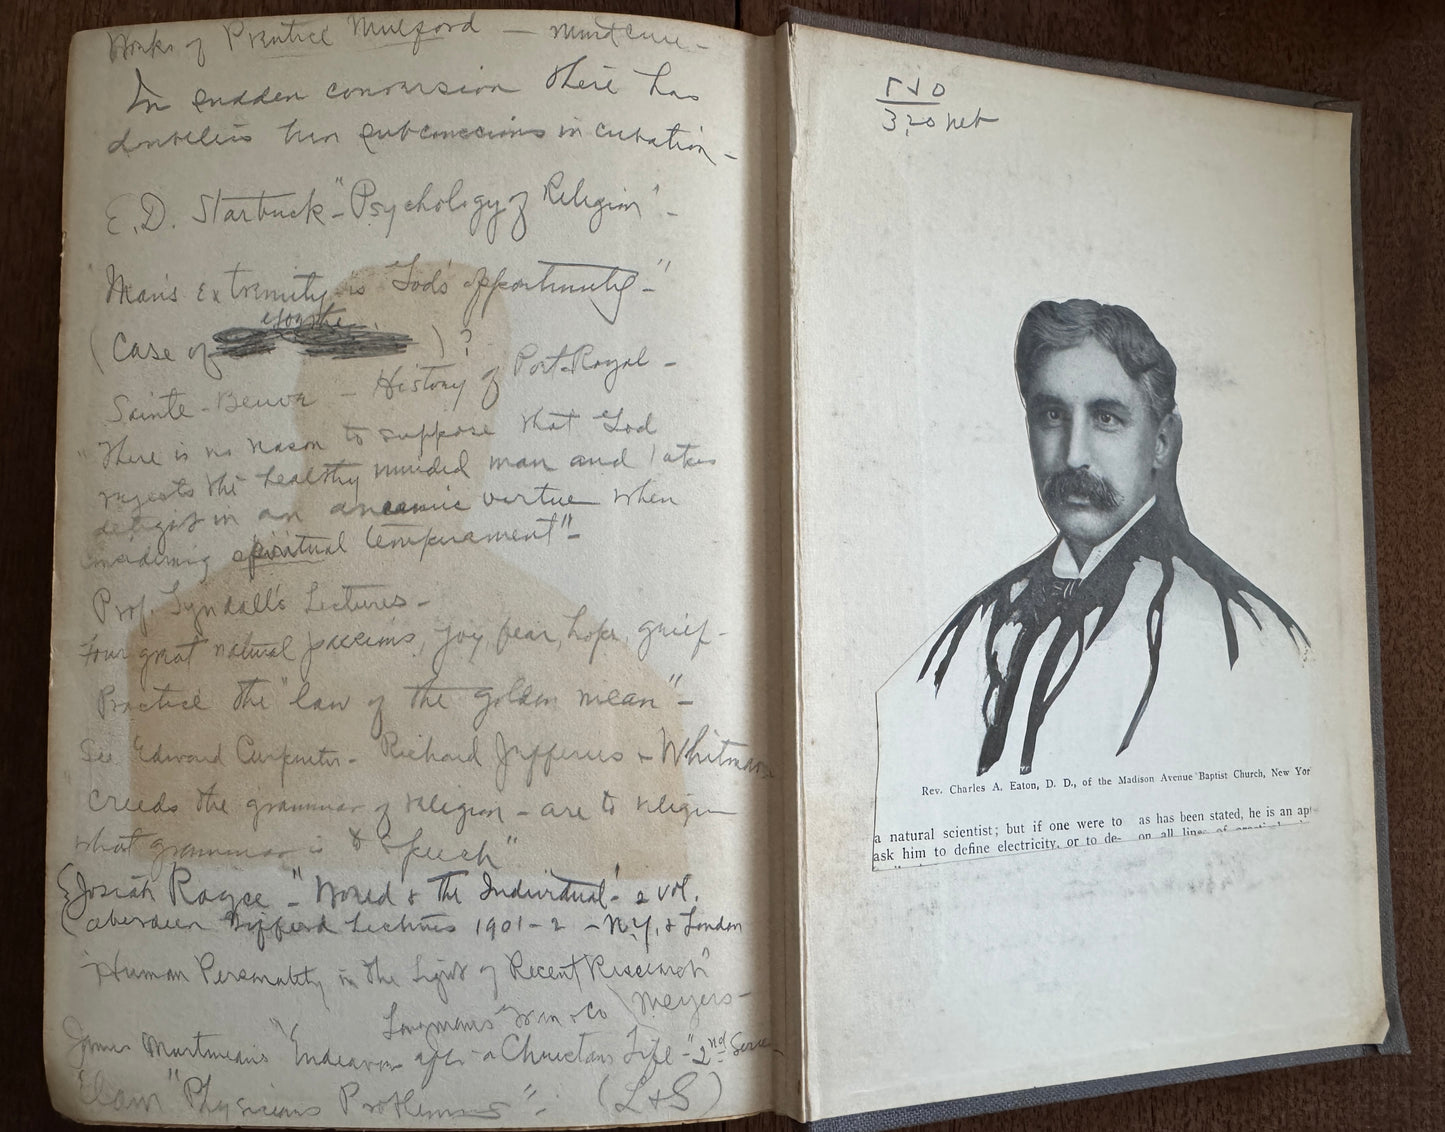 Works of Prentice Mulford — mind cure —
In sudden conversion there has
doubtless been subconscious incubation —
E. D. Starbuck - "Psychology of Religion" -
"Man's Extremity is God's opportunity -"
(Case of ) ?
Sainte-Beuve - History of Port-Royal -
"There is no reason to suppose that God
rejects the healthy minded man and takes
delight in an anaemic virtue when
considering spiritual temperament" -
Prof. Tyndall's Lectures -
Four great natural passions, joy, fear, hope, grief -
Practice the "law of the golden mean" -
See Edward Carpenter - Richard Jefferies - Whitman
Creeds the grammar of religion - are to religion
what grammar is to Speech"
Josiah Royce - "World & the Individual" - 2 vol.
(Aberdeen Gifford Lectures 1901-2 - N.Y. & London
"Human Personality in the Light of Recent Research"
Meyers -
Longmans Green & Co
James Martineau's "Endeavor after a Christian Life - "2nd Series
"Physicians Problems" - (L & S)
3.20 net
Rev. Charles A. Eaton, D. D., of the Madison Avenue Baptist Church, New Yor
a natural scientist; but if one were to
ask him to define electricity, or to de-
as has been stated, he is an
on all lines of